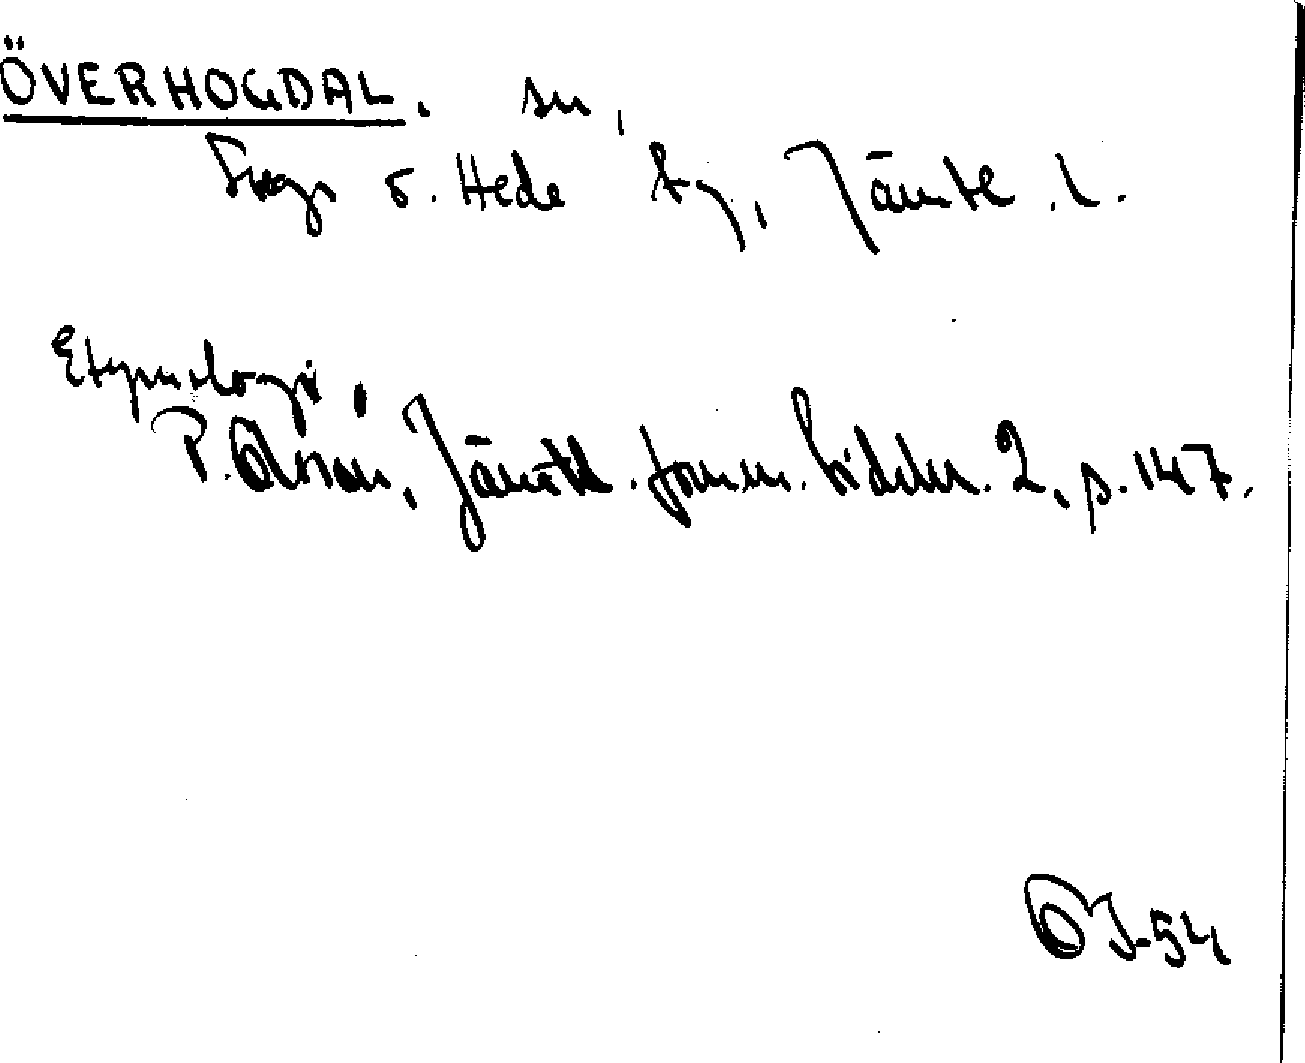 ÖVERHOGDAL. sn,
Svegs o. Hede tg, Jämtl. l.
Etymologi,
P. Olsson, Jämtl. fornm. bilder. 2, p. 147.
ÖJ-54